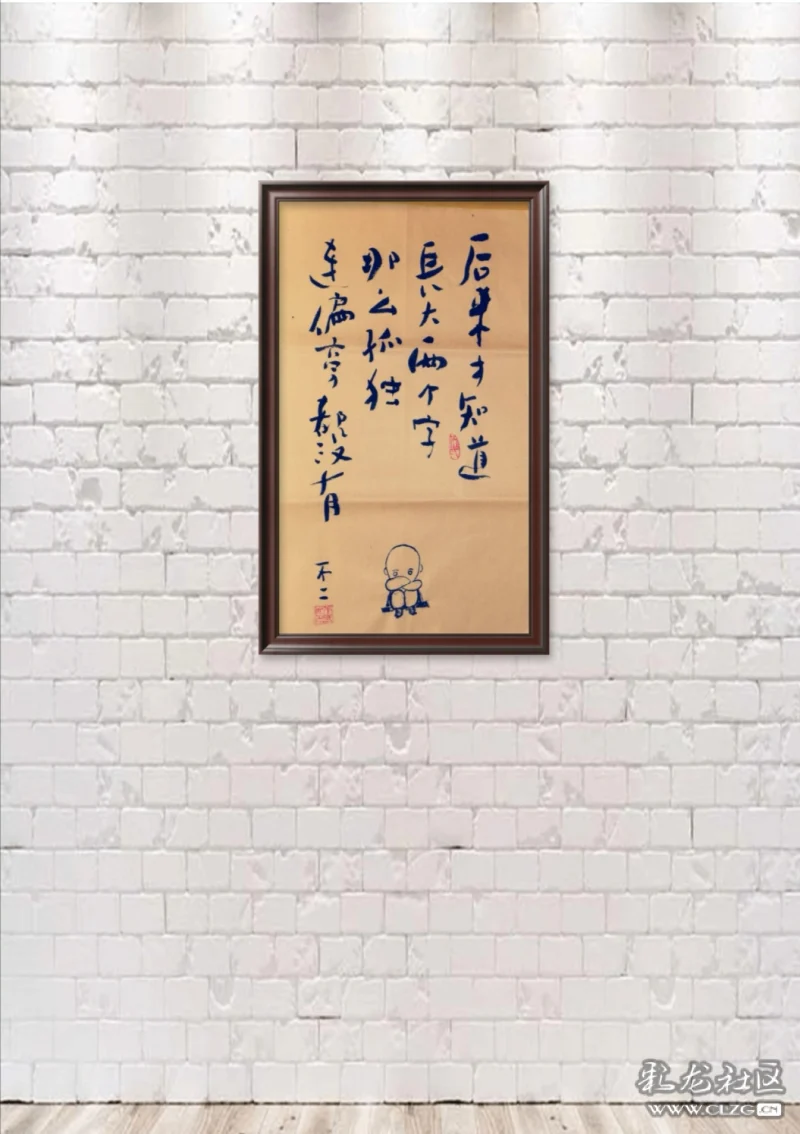 后来才知道
長大两个字
那么孤独
連偏旁都没有
不二
彩龙社区
WWW.CLZG.CN